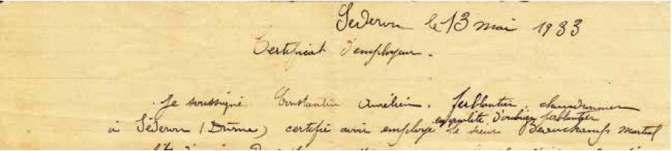 Séderon le 13 mai 1933
Certificat d'employeur.
Je soussigné Constantin Aurélien. ferblantier. chaudronnier
en qualité d'ouvrier ferblantier
à Séderon (Drôme) certifie avoir employé le sieur Deauchamps Martial